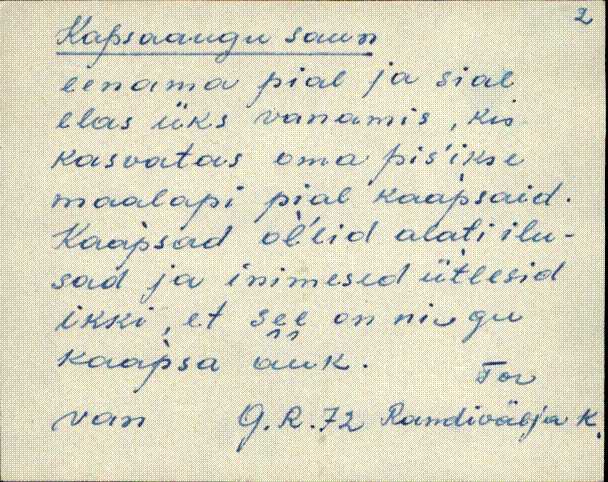 2
Kapsaaugu saun
eenama pial ja sial
elas üks vanamis, kis
kasvatas oma pis'ikse
maalapi pial kaapsaid.
Kaapsad ol'lid alati ilu-
sad ja inimesed ütlesid
ikki, et see on niugu
kaapsa auk.
Tor
van G.R.72 Randivälja k.